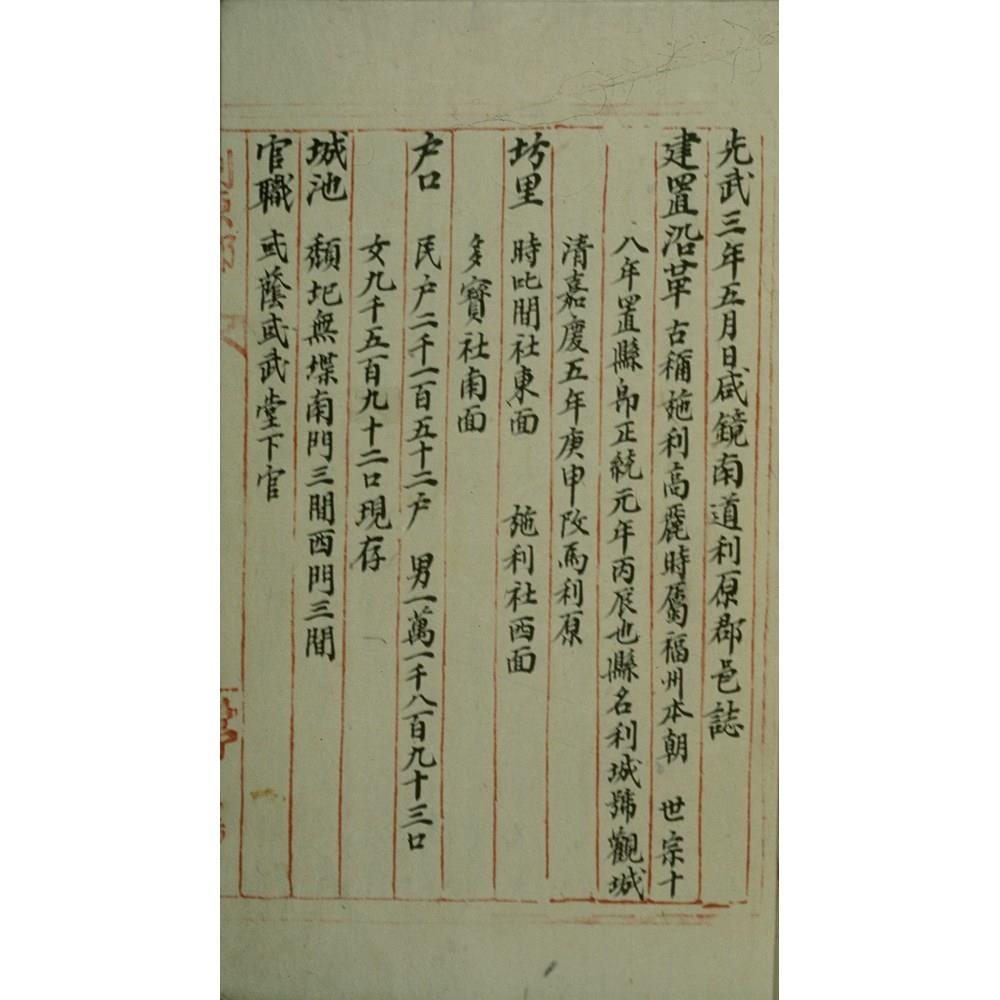 光武三年五月日咸鏡南道利原郡邑誌
建置沿革 古稱施利高麗時屬福州本朝 世宗十
八年置縣卽正統元年丙辰也縣名利城號觀城
清嘉慶五年庚申改爲利原
坊里 時叱間社東面 施利社西面
多寶社南面
户口 民户二千一百五十二户 男一萬一千八百九十三口
女九千五百九十二口現存
城池 頹圮無堞南門三間西門三間
官職 或蔭或武堂下官